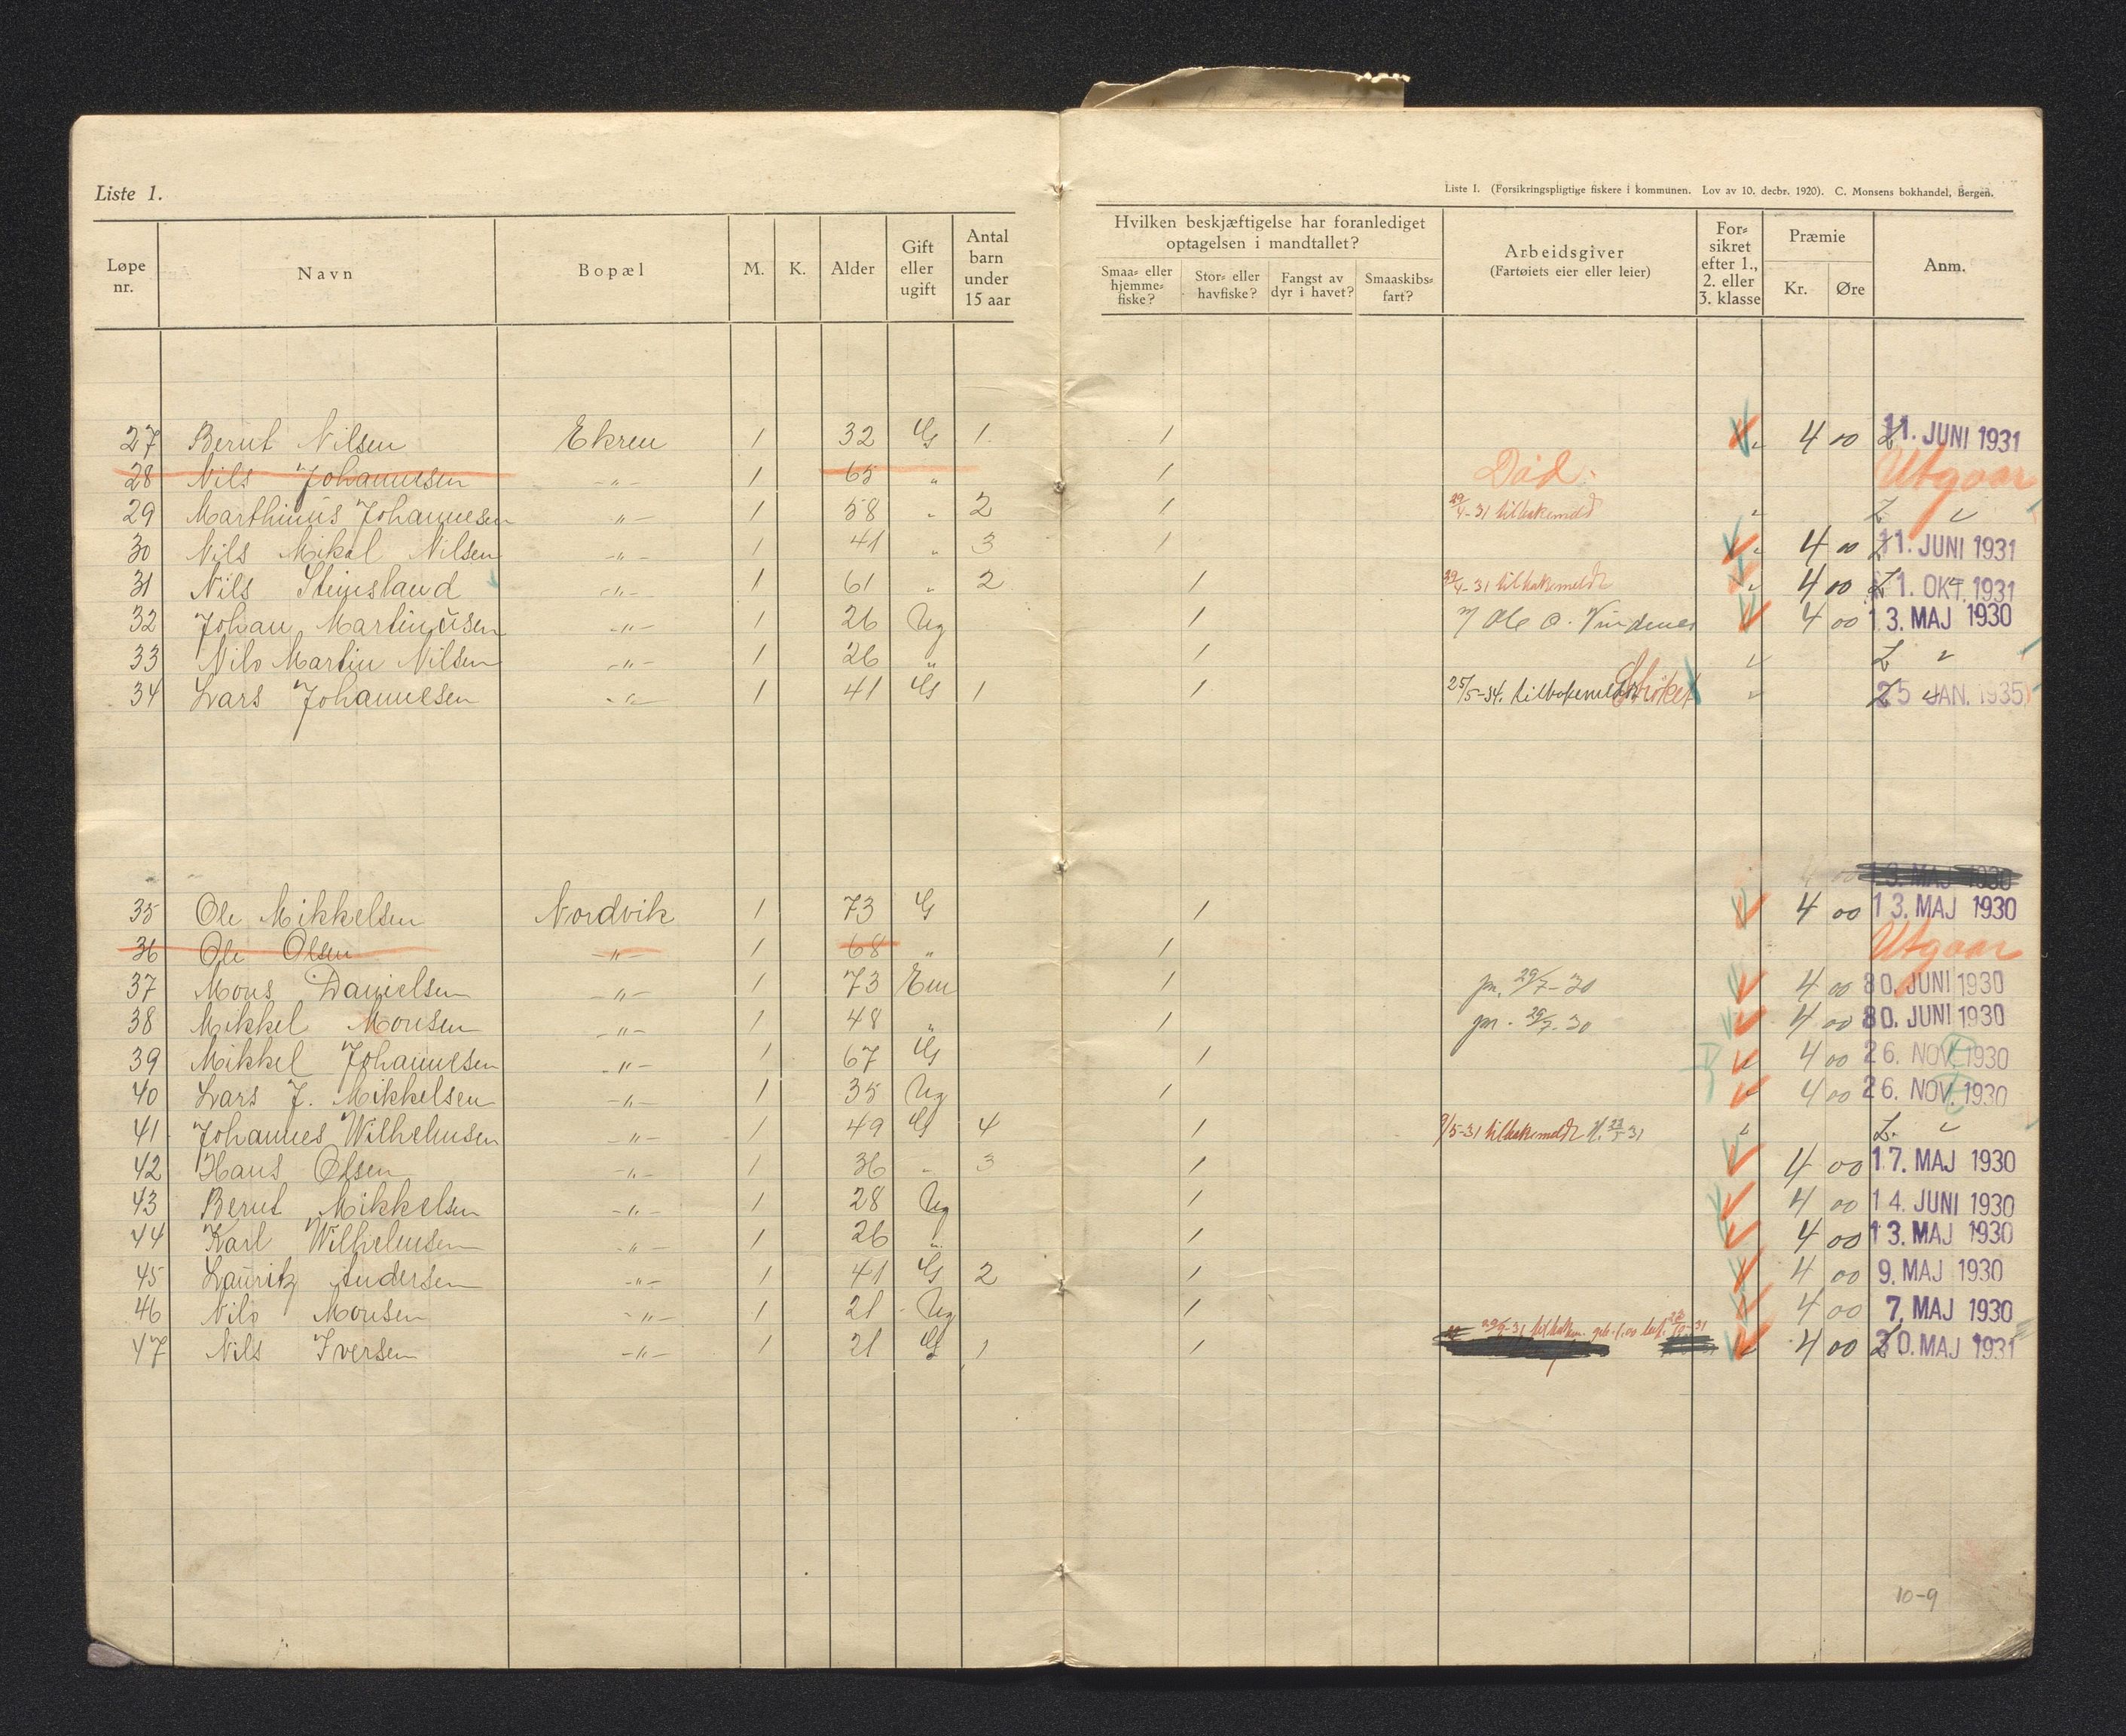 Liste 1.
Liste 1. (Forsikringspligtige fiskere i kommunen. Lov av 10. decbr. 1920). C. Monsens bokhandel, Bergen.
Løpe nr. Navn Bopæl M. K. Alder Gift eller ugift Antal barn under 15 aar Hvilken beskjæftigelse har foranlediget optagelsen i mandtallet? Smaa- eller hjemme-fiske? Stor- eller havfiske? Fangst av dyr i havet? Smaaskibs-fart? Arbeidsgiver (Fartøiets eier eller leier) For-sikret efter 1., 2. eller 3. klasse Præmie Kr. Øre Anm.
27 Bernt Nilsen Ekren 1 32 G 1 1 4 00 11. JUNI 1931
28 Nils Johannesen -"- 1 65 " 1 Død. Utgaar
29 Marthinus Johannesen -"- 1 58 " 2 1 29/4-31 tilbakemeld L
30 Nils Mikal Nilsen -"- 1 41 " 3 1 4 00 11. JUNI 1931
31 Nils Steinsland -"- 1 61 " 2 1 29/4-31 tilbakemeldt 4 00 1. OKT. 1931
32 Johan Martinusen -"- 1 26 Ug 1 Ole O. Vindenes 4 00 13. MAJ 1930
33 Nils Martin Nilsen -"- 1 26 " 1 L
34 Lars Johannesen -"- 1 41 G 1 1 25/5-34. tilbakemeldt Strøket 25 JAN. 1935
4 00 13. MAJ 1930
35 Ole Mikkelsen Nordvik 1 73 G 1 4 00 13. MAJ 1930
36 Ole Olsen -"- 1 68 " 1 Utgaar
37 Mons Danielsen -"- 1 73 Em 1 pn. 29/7-30 4 00 30. JUNI 1930
38 Mikkel Monsen -"- 1 48 " 1 pn. 29/7-30 4 00 30. JUNI 1930
39 Mikkel Johannesen -"- 1 67 G 1 4 00 26. NOV. 1930
40 Lars J. Mikkelsen -"- 1 35 Ug 1 4 00 26. NOV. 1930
41 Johannes Wilhelmsen -"- 1 49 G 4 1 9/5-31 tilbakemeldt 23/5-31 L.
42 Hans Olsen -"- 1 36 " 3 1 4 00 17. MAJ 1930
43 Bernt Mikkelsen -"- 1 28 Ug 1 4 00 14. JUNI 1930
44 Karl Wilhelmsen -"- 1 26 " 1 4 00 13. MAJ 1930
45 Lauritz Andersen -"- 1 41 G 2 1 4 00 9. MAJ 1930
46 Nils Monsen -"- 1 21 Ug 1 4 00 7. MAJ 1930
47 Nils Iversen -"- 1 21 G 1 1 4 00 30. MAJ 1931
10-9